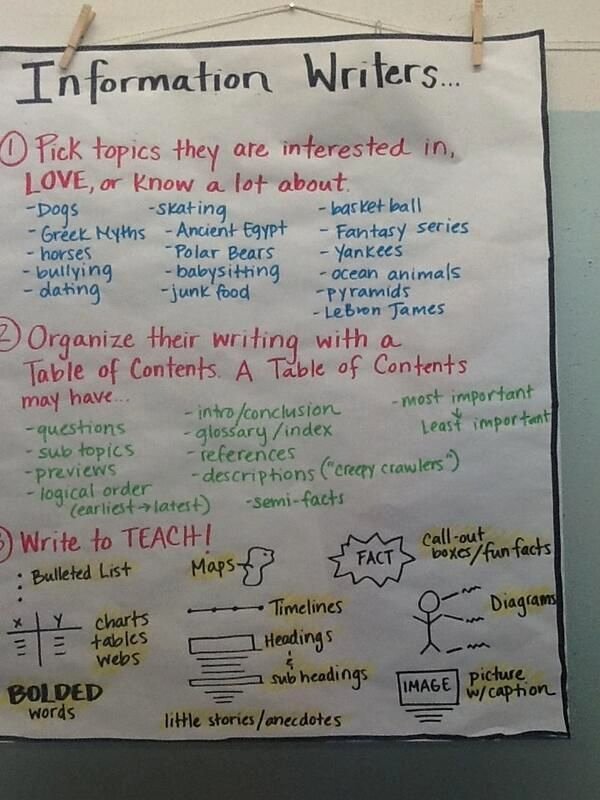 Information Writers...
① Pick topics they are interested in,
LOVE, or know a lot about.
-Dogs
- Greek Myths
- horses
- bullying
- dating
-skating
- Ancient Egypt
- Polar Bears
- babysitting
- junk food
- basketball
- Fantasy series
- Yankees
- ocean animals
- pyramids
- LeBron James
② Organize their writing with a
Table of Contents. A Table of Contents
may have...
- questions
- sub topics
- previews
- logical order
(earliest → latest)
- intro/conclusion
- glossary/index
- references
- descriptions ("creepy crawlers")
-semi-facts
- most important
↓
Least important
③ Write to TEACH!
Bulleted List
Maps-
FACT
call-out
boxes/fun facts
X Y
charts
tables
webs
Timelines
Headings
&
sub headings
Diagrams
BOLDED
words
little stories/anecdotes
IMAGE
picture
w/caption